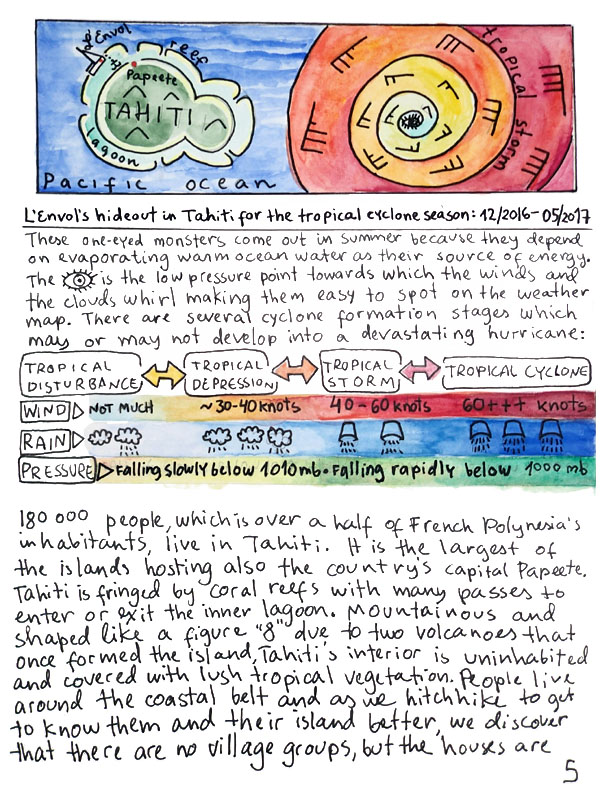 L'Envol
reef
Papeete
TAHITI
lagoon
Pacific ocean
tropical storm
L'Envol's hideout in Tahiti for the tropical cyclone season: 12/2016-05/2017
These one-eyed monsters come out in summer because they depend
on evaporating warm ocean water as their source of energy.
The is the low pressure point towards which the winds and
the clouds whirl making them easy to spot on the weather
map. There are several cyclone formation stages which
may or may not develop into a devastating hurricane:
TROPICAL DISTURBANCE TROPICAL DEPRESSION TROPICAL STORM TROPICAL CYCLONE
WIND NOT MUCH ~30-40 knots 40-60 knots 60+++ knots
RAIN
PRESSURE Falling slowly below 1010mb. Falling rapidly below 1000 mb
180 000 people, which is over a half of French Polynesia's
inhabitants, live in Tahiti. It is the largest of
the islands hosting also the country's capital Papeete.
Tahiti is fringed by coral reefs with many passes to
enter or exit the inner lagoon. Mountainous and
shaped like a figure "8" due to two volcanoes that
once formed the island, Tahiti's interior is uninhabited
and covered with lush tropical vegetation. People live
around the coastal belt and as we hitchhike to get
to know them and their island better, we discover
that there are no village groups, but the houses are
5